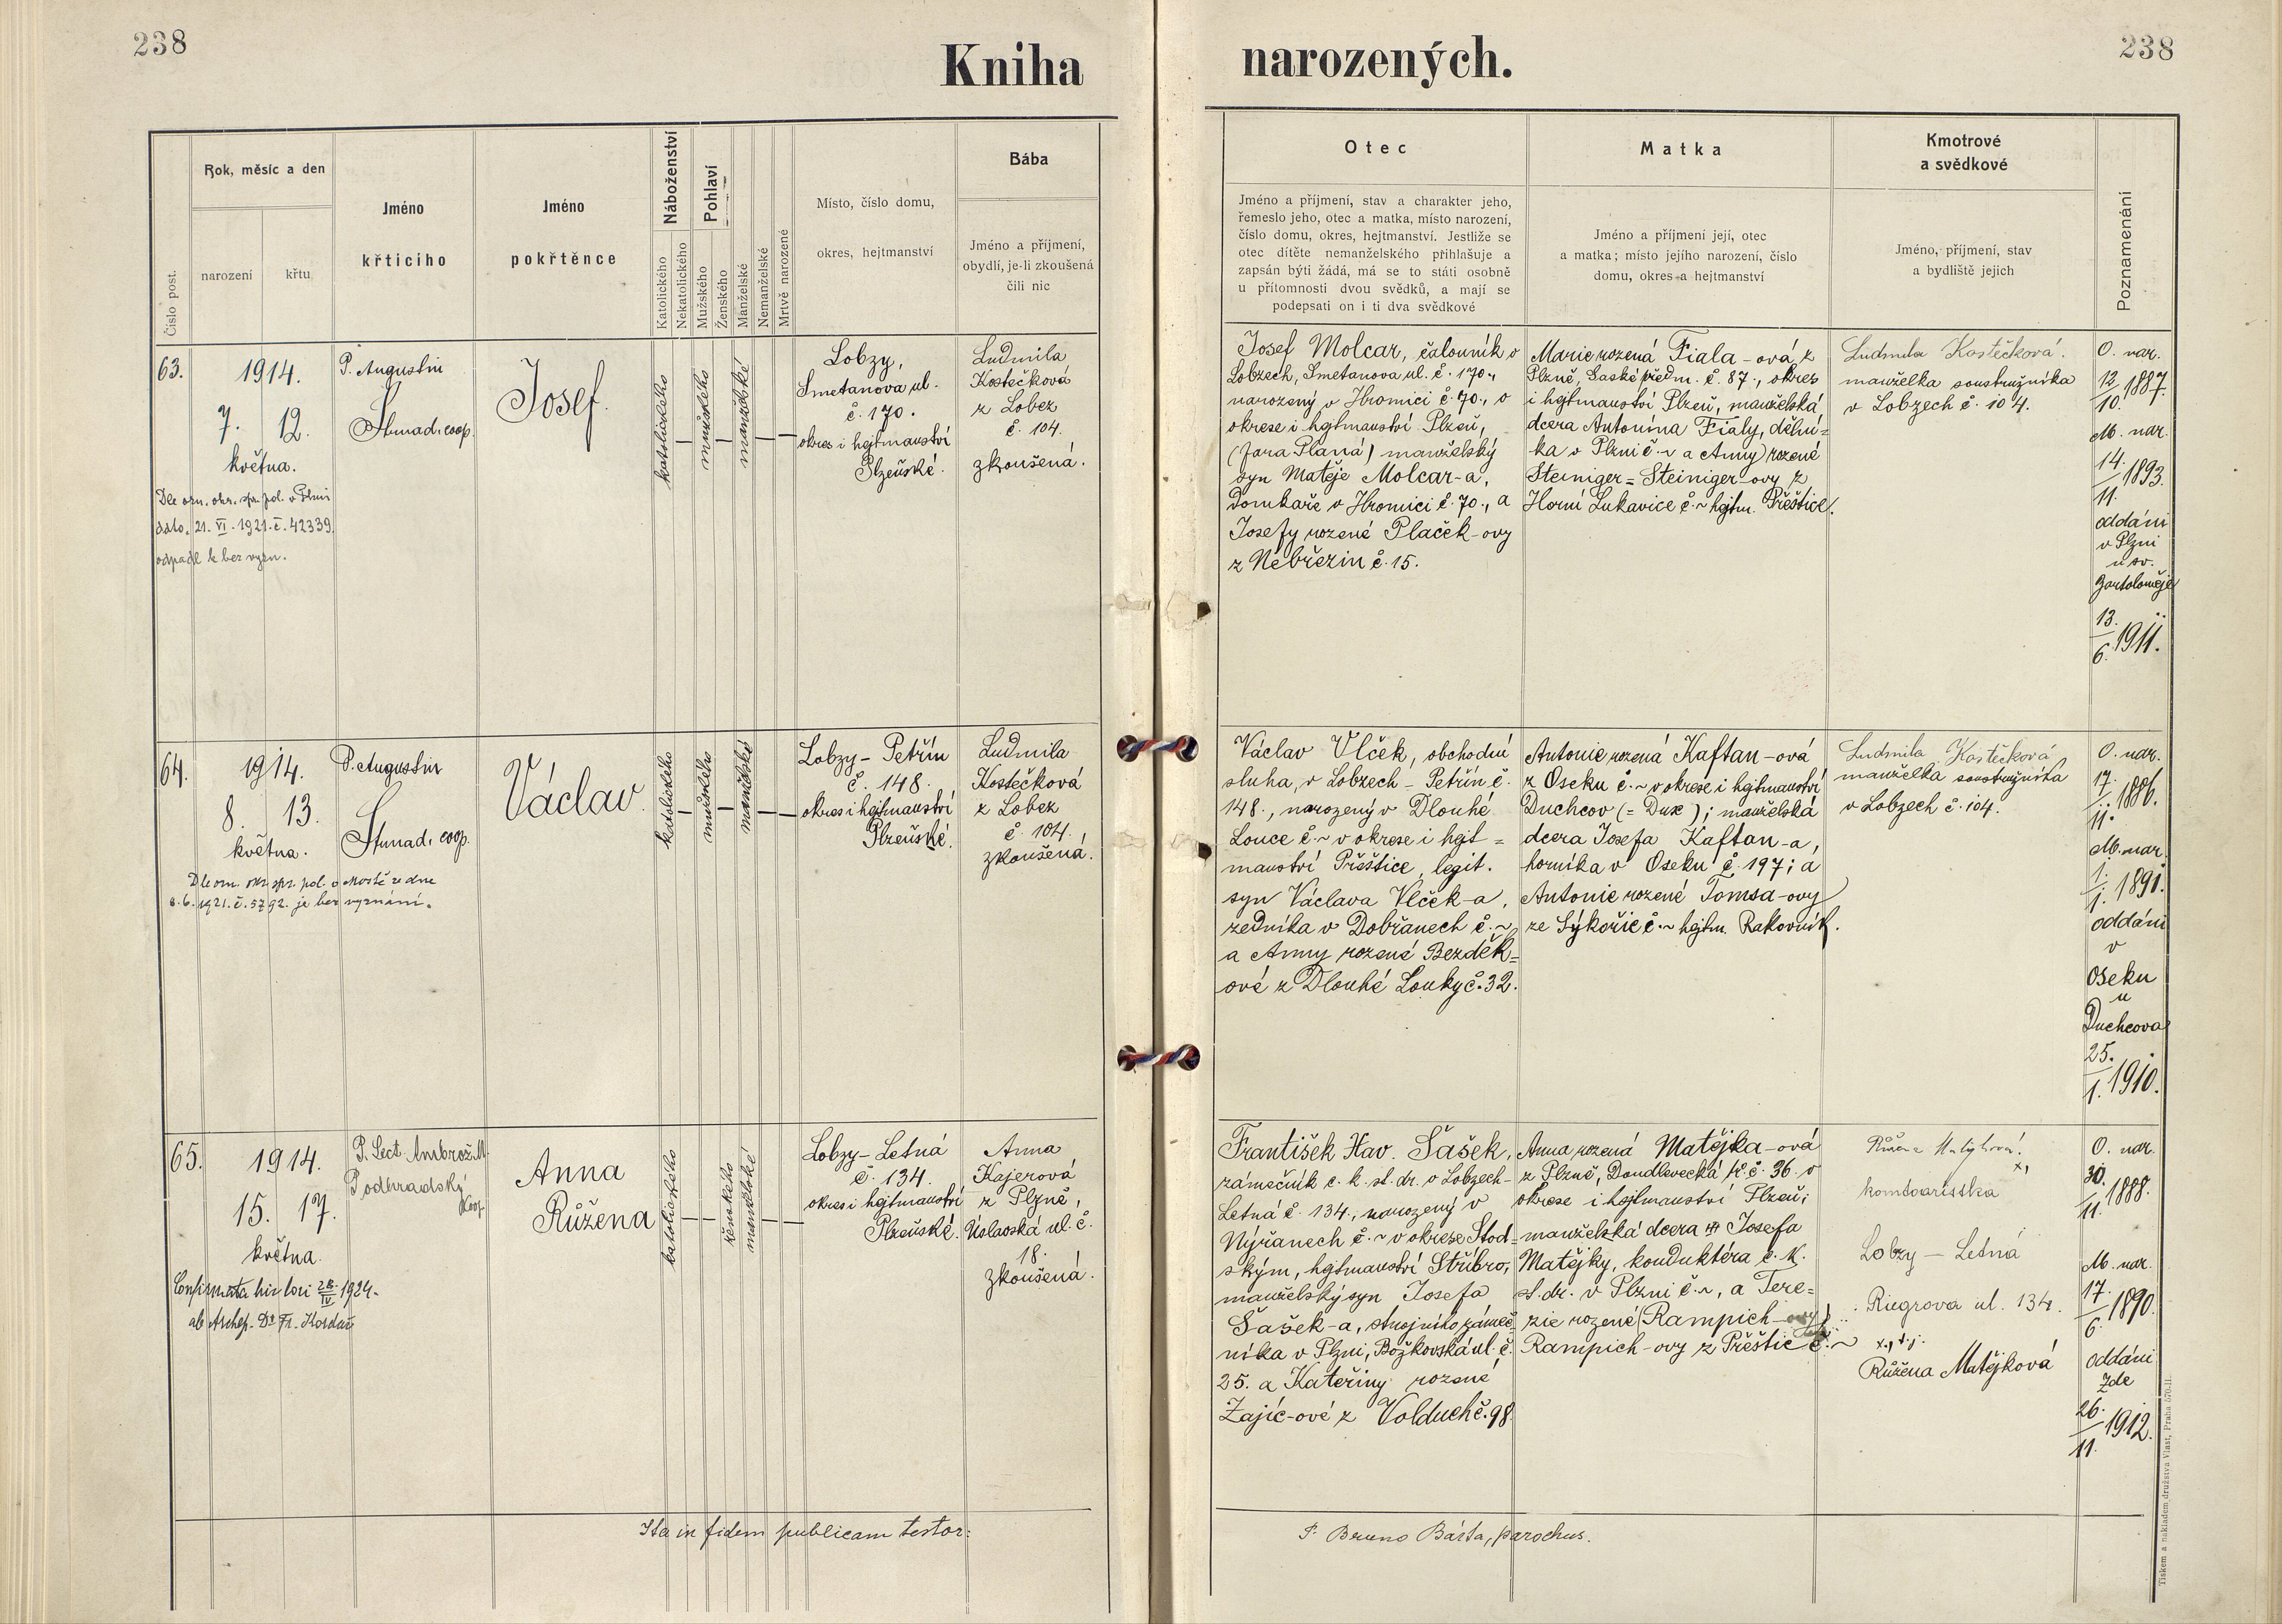 238
Kniha
narozených.
238
Číslo post.
Rok, měsíc a den
narození
křtu
Jméno
křticího
Jméno
pokřtěnce
Náboženství
Katolického
Nekatolického
Pohlaví
Mužského
Ženského
Manželské
Nemanželské
Mrtvě narozené
Místo, číslo domu,
okres, hejtmanství
Bába
Jméno a příjmení,
obydlí, je-li zkoušená
čili nic
Otec
Jméno a příjmení, stav a charakter jeho,
řemeslo jeho, otec a matka, místo narození,
číslo domu, okres, hejtmanství. Jestliže se
otec dítěte nemanželského přihlašuje a
zapsán býti žádá, má se to státi osobně
u přítomnosti dvou svědků, a mají se
podepsati on i ti dva svědkové
Matka
Jméno a příjmení její, otec
a matka; místo jejího narození, číslo
domu, okres a hejtmanství
Kmotrové
a svědkové
Jméno, příjmení, stav
a bydliště jejich
Poznamenání
63.
1914.
7. 12.
května.
Dle ozn. okr. spr. pol. v Plzni
dato. 21. VI. 1921. č. 42339.
odpadl k bez vyzn.
P. Augustin
Strnad, coop.
Josef.
katolického
mužského
manželské
Lobzy,
Smetanova ul.
č. 170.
okres i hejtmanství
Plzeňské.
Ludmila
Kostečková
z Lobez
č. 104.
zkoušená.
Josef Molcar, čalouník v
Lobzech, Smetanova ul. č. 170.,
narozený v Hromici č. 70., v
okrese i hejtmanství Plzeň,
(fara Planá) manželský
syn Matěje Molcar-a,
domkaře v Hromici č. 70., a
Josefy rozené Plaček-ovy
z Nebřezin č. 15.
Marie rozená Fiala-ová, z
Plzně, Saské předm. č. 87., okres
i hejtmanství Plzeň, manželská
dcera Antonína Fialy, dělní=
ka v Plzni č. ~ a Anny) rozené
Steiniger = Steiniger-ovy z
Horní Lukavice č. ~ hejtm. Přeštice.
Ludmila Kostečková.
manželka soustružníka
v Lobzech č. 104.
O. nar.
12./10. 1887.
M. nar.
14./11. 1893.
oddáni
v Plzni
u sv.
Bartoloměje
13./6. 1911.
64.
1914.
8. 13.
května.
Dle ozn. okr. spr. pol. v Mostě ze dne
8. 6. 1921. č. 5792. je bez vyznání.
P. Augustin
Strnad, coop.
Václav.
katolického
mužského
manželské
Lobzy - Petřín
č. 148.
okres i hejtmanství
Plzeňské.
Ludmila
Kostečková
z Lobez
č. 104.
zkoušená.
Václav Vlček, obchodní
sluha, v Lobzech - Petřín č.
148., narozený v Dlouhé
Louce č. ~ v okrese i hejt=
manství Přeštice, legit.
syn Václava Vlček-a,
zedníka v Dobřanech č. ~,
a Anny rozené Bezděk=
ové z Dlouhé Louky č. 32.
Antonie rozená Kaftan-ová
z Oseku č. ~ v okrese i hejtmanství
Duchcov (= Dux); manželská
dcera Josefa Kaftan-a,
horníka v Oseku č. 197; a
Antonie rozené Tomsa-ovy
ze Sýkořic č. ~ hejtm. Rakovník.
Ludmila Kostečková
manželka soustružníka
v Lobzech č. 104.
O. nar.
17./11. 1886.
M. nar.
1./1. 1891.
oddáni
v
Oseku
u
Duchcova
25./1. 1910.
65.
1914.
15. 17.
května.
Confirmata hir lori 28/IV 1924.
ab Archep. Dr Fr. Kordač
P. Lect. Ambrož M.
Podhradský
Koop.
Anna
Růžena
katolického
ženského
manželské
Lobzy - Letná
č. 134.
okres i hejtmanství
Plzeňské.
Anna
Kajerová
z Plzně,
Úslavská ul. č.
18.
zkoušená.
František Hav. Šašek,
zámečník c. k. st. dr. v Lobzech-
Letná č. 134., narozený v
Nýřanech č. ~ v okrese Stod=
ským, hejtmanství Stříbro,
manželský syn Josefa
Šašek-a, strojního zámeč=
níka v Plzni, Božkovská ul. č.
25. a Kateřiny rozené
Zajíc-ové z Volduch č. 98.
Anna rozená Matějka-ová
z Plzně, Doudlevecká tř. č. 36. v
okrese i hejtmanství Plzeň;
manželská dcera Josefa
Matějky, konduktéra c. k.
st. dr. v Plzni č. ~, a Tere=
zie rozené (Rampich-ovy)
Rampich-ovy z Přeštic č. ~
Růžena Matějková. x,
komtoaristka
Lobzy - Letná
Riegrova ul. 134.
x, t. j.
Růžena Matějková
O. nar.
30./11. 1888.
M. nar.
17./6. 1890.
oddáni
zde
26./11. 1912.
Ita in fidem publicam testor:
P. Bruno Bárta, parochus.
Tiskem a nákladem družstva Vlast, Praha 570-II.